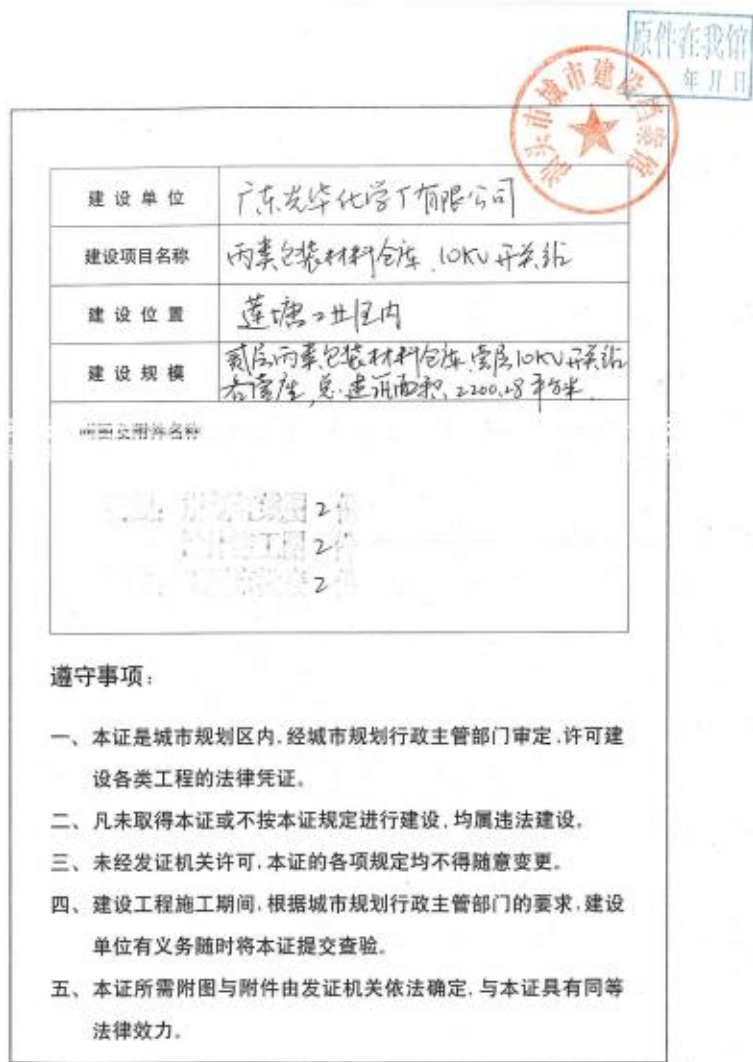 原件在我馆
年月日
汕头市城市建设档案馆
建设单位 广东光华化学厂有限公司
建设项目名称 丙类包装材料仓库、10KV开关站
建设位置 莲塘工业区内
建设规模 贰层丙类包装材料仓库、壹层10KV开关站
各壹座,总建筑面积2200.28平方米.
附图及附件名称
2份
2份
2
遵守事项:
一、本证是城市规划区内,经城市规划行政主管部门审定,许可建
设各类工程的法律凭证。
二、凡未取得本证或不按本证规定进行建设,均属违法建设。
三、未经发证机关许可,本证的各项规定均不得随意变更。
四、建设工程施工期间,根据城市规划行政主管部门的要求,建设
单位有义务随时将本证提交查验。
五、本证所需附图与附件由发证机关依法确定,与本证具有同等
法律效力。